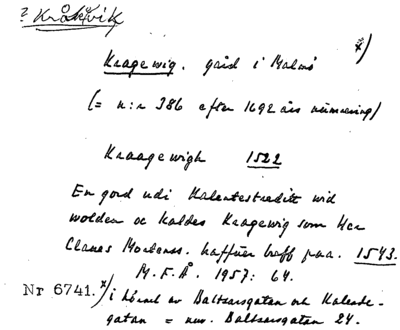 ? Kråkvik
x)
Kragewig. gård i Malmö
(= n:r 386 efter 1692 års numrering)
Kraagewigh 1522
En gord udi Kalentestreditt wid
wolden oc kaldes Kragewig som Her
Claues Mortenss. haffuer breff paa. 1543.
M.F.Å. 1957: 64.
Nr 6741. x) i hörnet av Baltzarsgatan och Kalende-
gatan = nuv. Baltzarsgatan 24.